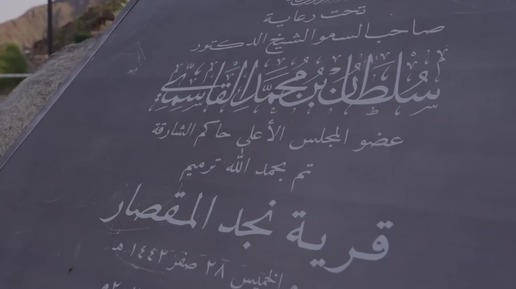 تحت رعاية
صاحب السمو الشيخ الدكتور
سلطان بن محمد القاسمي
عضو المجلس الأعلى حاكم الشارقة
تم بحمد الله ترميم
قرية نجد المقصار
الخميس ٢٨ صفر ١٤٤٢ هـ